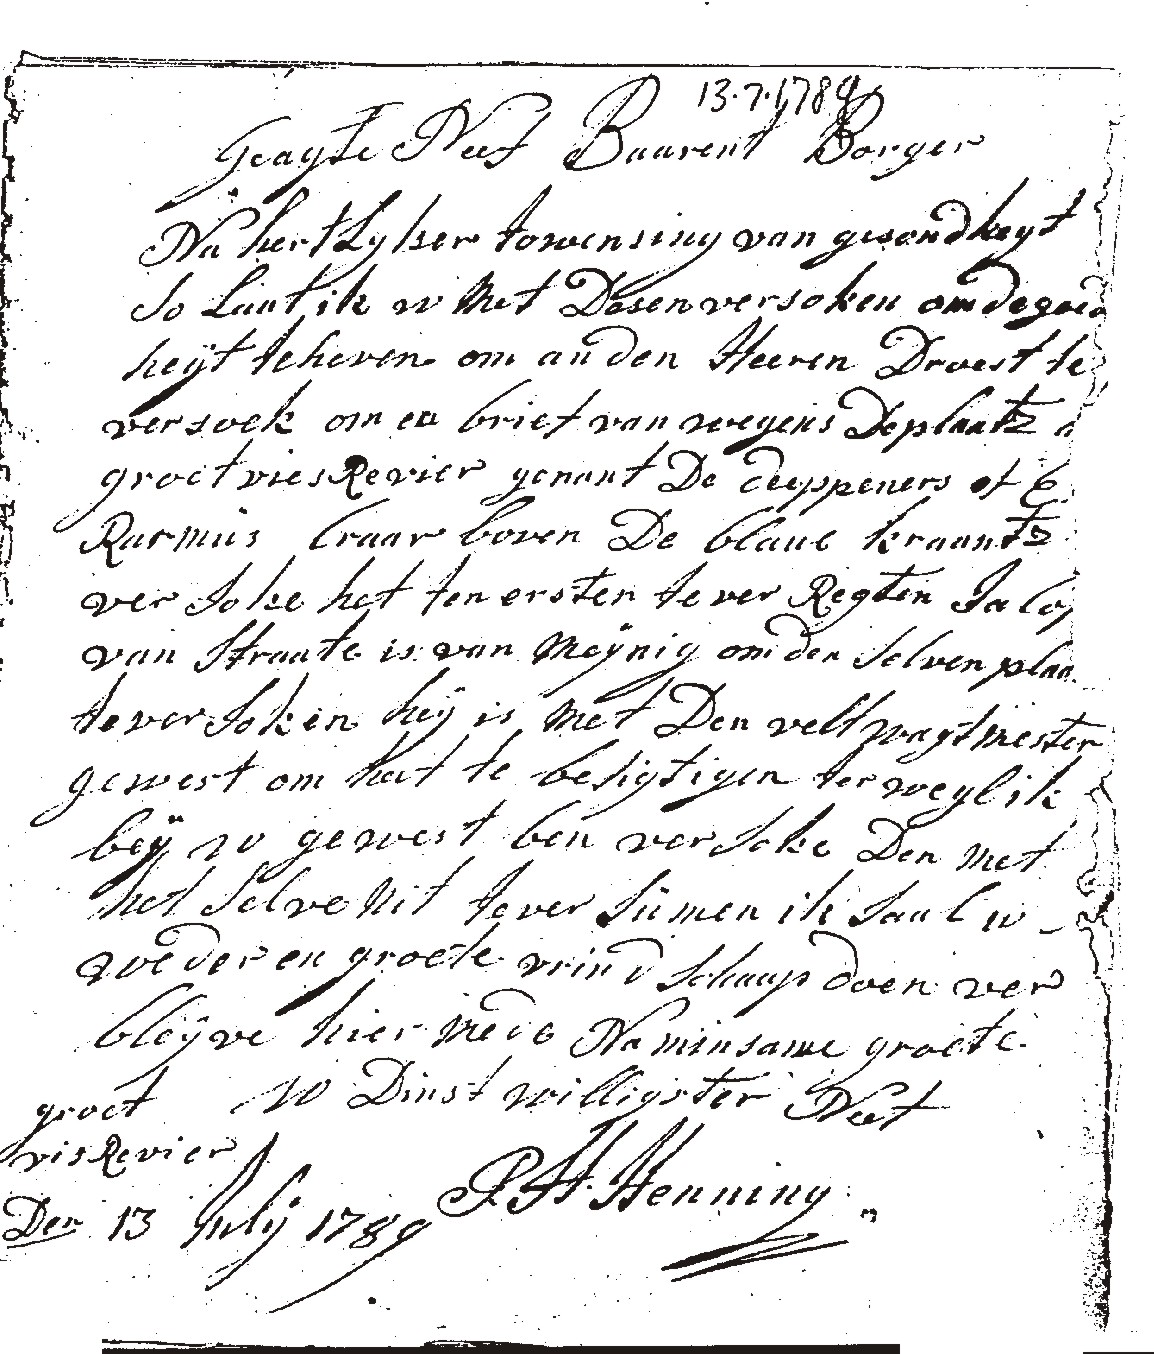 13.7.1789
Geagte Neef Baarent Borger
Na hertlykser towensing van gesondheyt
So Laat ik w Met Desen versoken om de goed
heyt te heven om an den Heeren Droest te
versoek om en brief van wegens De plaatz a
groet vies Revier genant De deeppeners of
Rasmüs Craar boven De blaue kraantz
ver Soke het ten ersten te ver Regten Jaco
van Straate is van Meÿnig om den Selven plaa
te ver Soken heÿ is Met Den velt wagtmester
gewest om het te besigtigen ter weyl ik
beÿ w gewest ben ver Soke Den Met
het Selve Nit te ver Sümen ik Saal w
weder en groete vrind Schaap doen ver
bleÿve hier Mede Na minsame groete
groet w Dinst willigster Neef
vis Revier
Den 13 Julÿ 1789 P H Henning